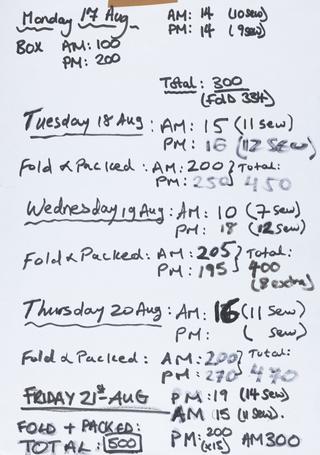 Monday 17 Aug AM: 14 (10 sew)
PM: 14 (9 sew)
BOX AM: 100
PM: 200
Total: 300
(Fold 384)
Tuesday 18 Aug: AM: 15 (11 sew)
PM: 16 (12 sew)
Fold & Packed: AM: 200 } Total:
PM: 250 } 450
Wednesday 19 Aug: AM: 10 (7 sew)
PM: 18 (12 sew)
Fold & Packed: AM: 205 } Total:
PM: 195 } 400
(8 extra)
Thursday 20 Aug: AM: 16 (11 sew)
PM: ( sew)
Fold & Packed: AM: 200 } Total:
PM: 270 } 470
FRIDAY 21ST AUG PM: 19 (14 sew)
AM 15 (11 sew).
FOLD + PACKED:
TOTAL: 500 PM: 200 (x15) AM 300